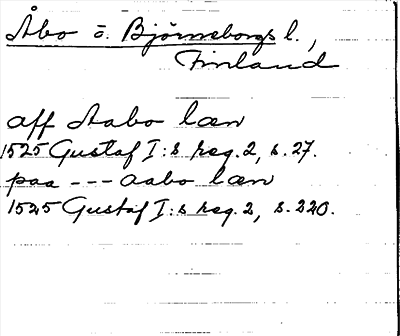 Åbo o. Björneborgs l.,
Finland
aff Aabo læn
1525 Gustaf I:s reg. 2, s. 27.
paa --- aabo læn
1525 Gustaf I:s reg. 2, s. 220.